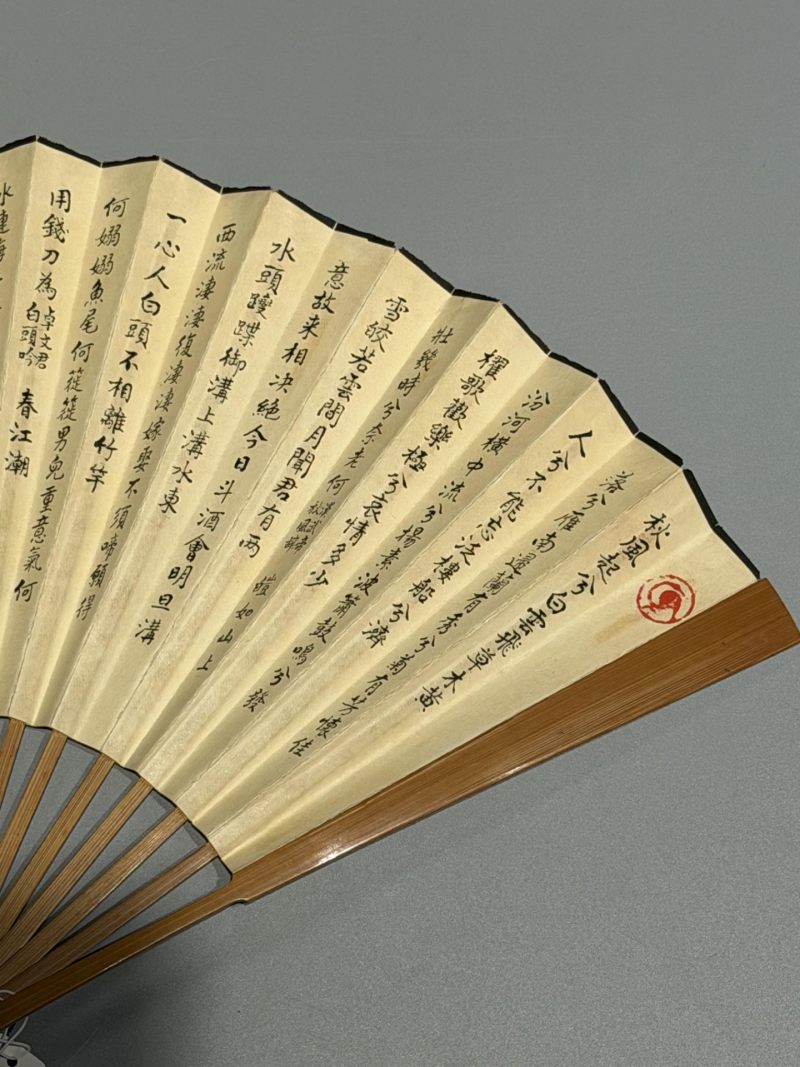 秋風起兮白雲飛草木黃
落兮雁南還蘭有秀兮菊有芳懷佳
人兮不能忘泛樓船兮濟
汾河橫中流兮揚素波簫鼓鳴兮發
櫂歌歡樂極兮哀情多少
壯幾時兮奈老何
漢武帝
秋風辭
皚如山上
雪皎若雲間月聞君有兩
意故来相决絕今日斗酒會明旦溝
水頭躞蹀御溝上溝水東
西流淒淒復淒淒嫁娶不須啼願得
一心人白頭不相離竹竿
何嫋嫋魚尾何簁簁男兒重意氣何
用錢刀為
卓文君
白頭吟
春江潮
水連海